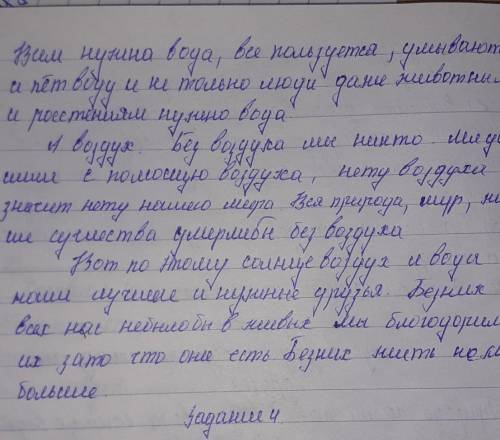 Всем нужна вода, все пользуется, умывают
и пет воду и не только люди даже животным
и россениям нужно вода.
А воздух. Без воздуха мы никто. Мы
с помощую воздуха, нету воздуха
значит нету нашего мера Вся природа, мир,
ше сущиства умерлибы без воздуха
Вот по этому солнце воздух и вода
наши лучшие и нужные друзья. Безних
всех нас небнлобы в живых мы благодорим
их зато что они есть Безних жить
больше.
Задание 4.